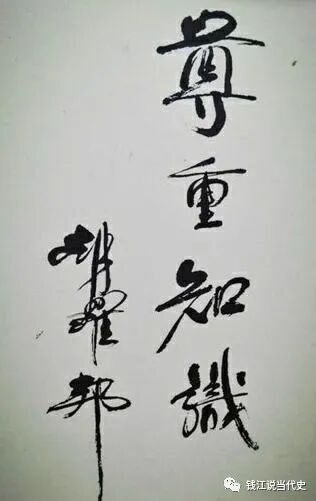 尊重知識
胡耀邦
钱江说当代史